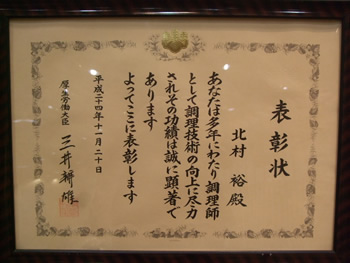 表彰状
北村 裕 殿
あなたは多年にわたり調理師
として調理技術の向上に尽力
されその功績は誠に顕著で
あります
よってここに表彰します
平成二十四年十一月二十日
厚生労働大臣
三井辨雄